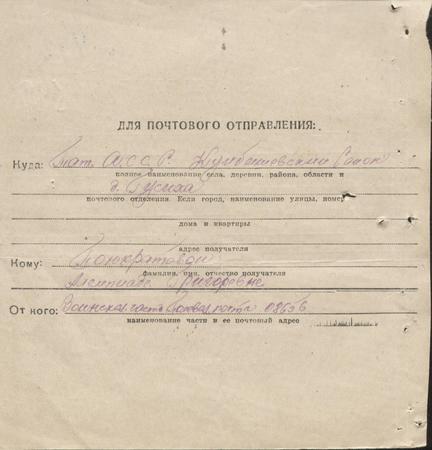 ДЛЯ ПОЧТОВОГО ОТПРАВЛЕНИЯ:
Куда: Тат. АССР. Куйбышевский Район
полное наименование села, деревни, района, области и
д.
почтового отделения. Если город, наименование улицы, номер
дома и квартиры
адрес получателя
Кому: Понкратовой
фамилия, имя, отчество получателя
Григорьевне
От кого: Воинская часть Полевая почта 08656
наименование части и ее почтовый адрес